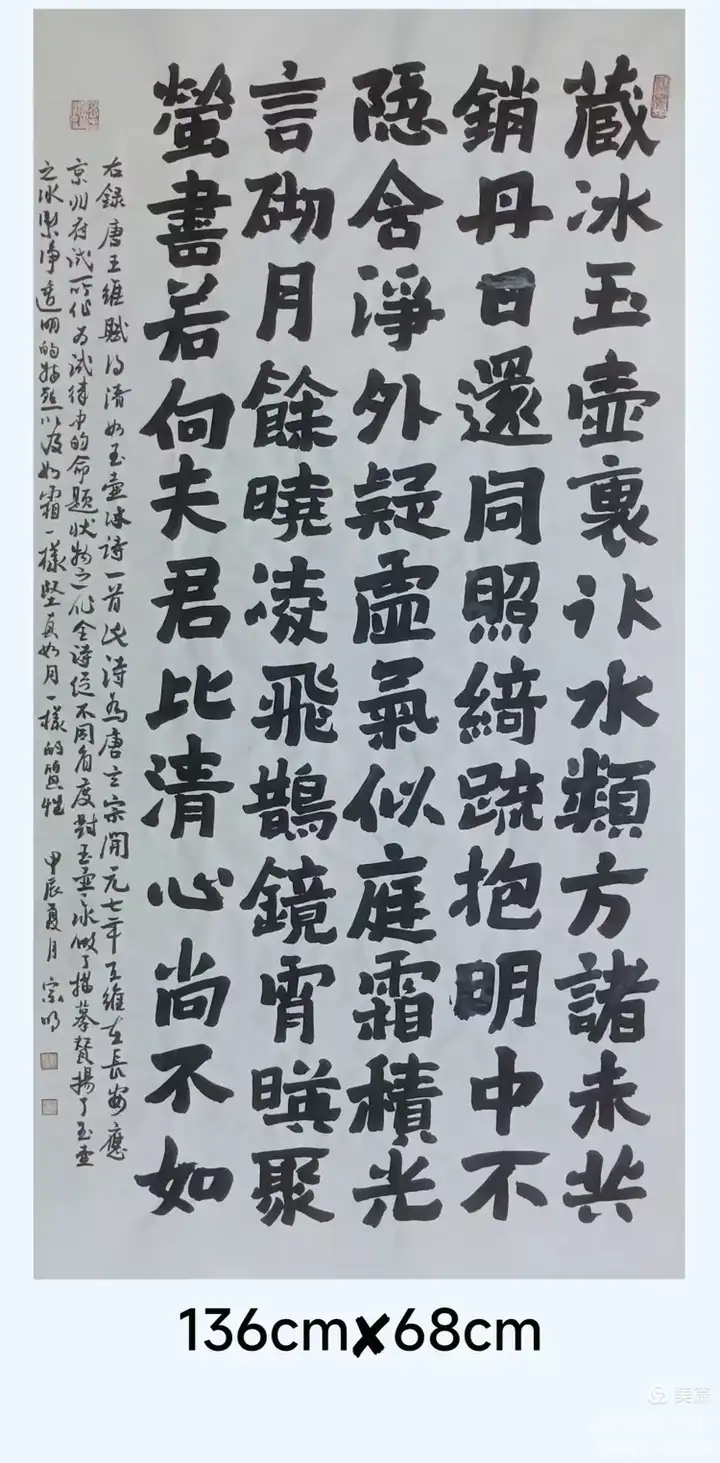 藏冰玉壺裏冰水類方諸未共
銷丹日還同照綺疏抱明中不
隱含淨外疑虛氣似庭霜積光
言砌月餘曉凌飛鵲鏡宵暎聚
螢書若向夫君比清心尚不如
右録唐王維賦得清如玉壺冰詩一首此詩為唐玄宗開元七年王維在長安應
京兆府試所作為試律中的命題狀物之作全詩從不同角度對玉壺冰做了描摹贊揚了玉壺
之冰潔淨透明的特點以及如霜一樣堅貞如月一樣的質性 甲辰夏月 宗明
136cm✘68cm
美篇